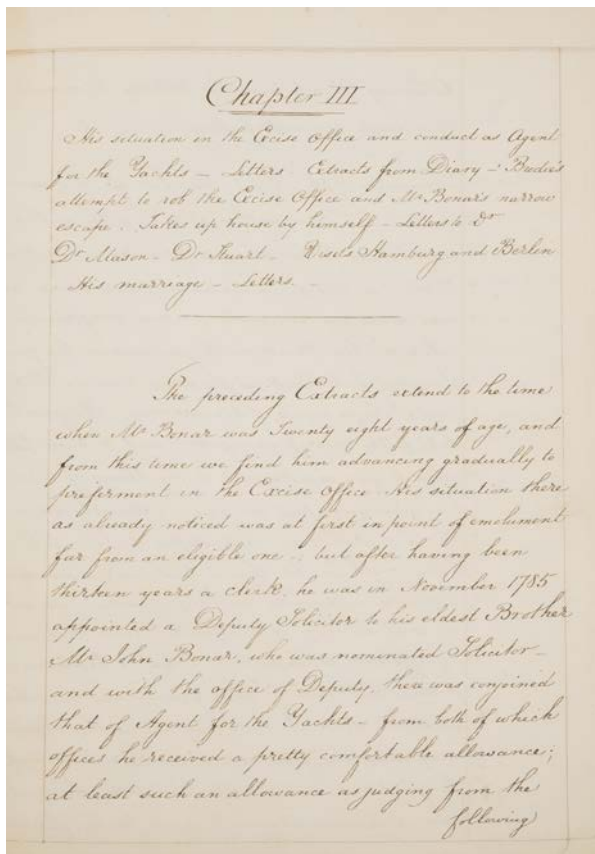 Chapter III
His situation in the Excise Office and conduct as Agent
for the Yachts – Letters. Extracts from Diary – Brodie's
attempt to rob the Excise Office and Mr Bonar's narrow
escape. Takes up house by himself – Letters to Dr
Dr Mason – Dr Stuart – Visits Hamburg and Berlin
His marriage – Letters. –
The preceding Extracts extend to the time
when Mr Bonar was Twenty eight years of age, and
from this time we find him advancing gradually to
preferment in the Excise Office. His situation there
as already noticed was at first in point of emolument
far from an eligible one –, but after having been
thirteen years a clerk, he was in November 1785
appointed a Deputy Solicitor to his eldest Brother
Mr John Bonar, who was nominated Solicitor –
and with the office of Deputy, there was conjoined
that of Agent for the Yachts – from both of which
offices he received a pretty comfortable allowance;
at least such an allowance as judging from the
following